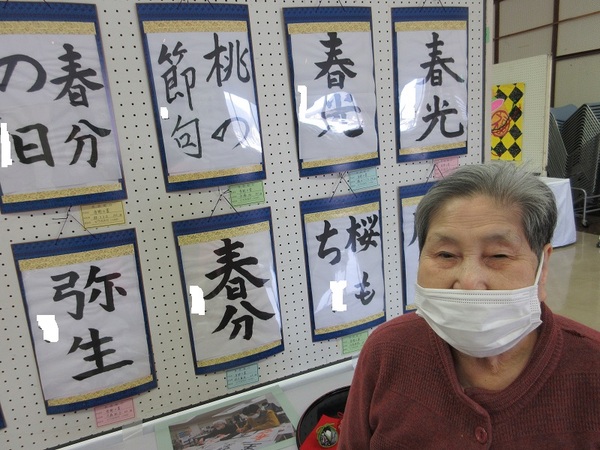 春分
の日
桃の
節句
春光
春光
弥生
春分
桜も
ち